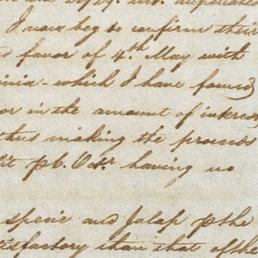 I now beg to confirm their
favor of 4th. May with
which I have found
or in the amount of interest
making the proceeds
Oct. having us
specie and Jalap p the
satisfactory than that of the